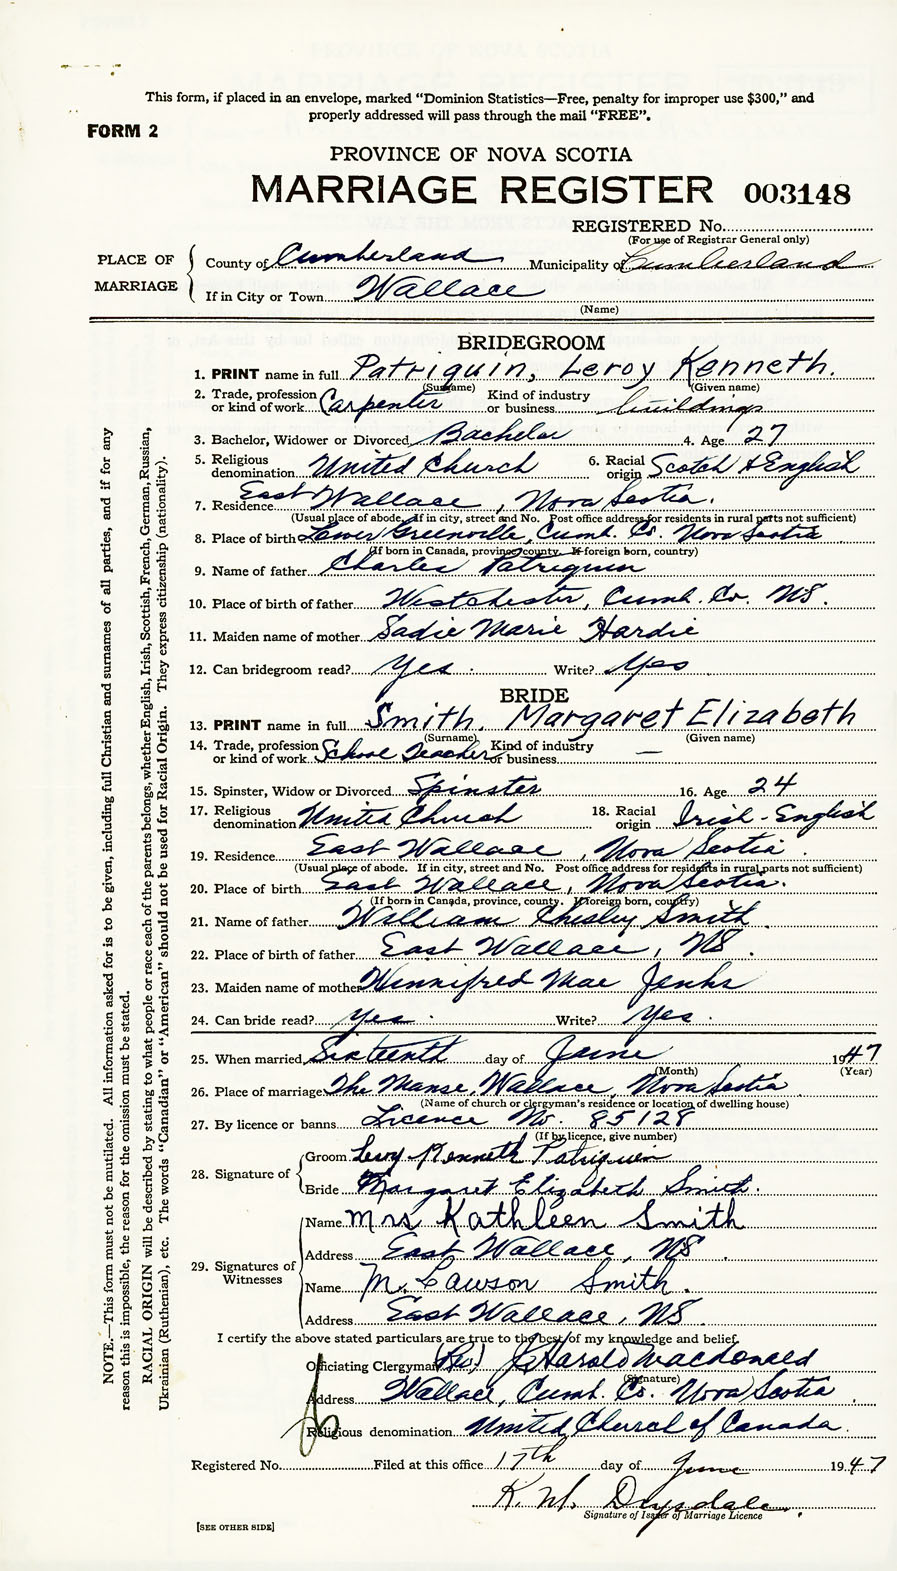 This form, if placed in an envelope, marked “Dominion Statistics—Free, penalty for improper use $300,” and
properly addressed will pass through the mail “FREE”.
FORM 2
PROVINCE OF NOVA SCOTIA
MARRIAGE REGISTER 003148
REGISTERED No.
(For use of Registrar General only)
PLACE OF MARRIAGE
County of Cumberland Municipality of Cumberland
If in City or Town Wallace
(Name)
BRIDEGROOM
1. PRINT name in full Patriquin, Leroy Kenneth.
(Surname) (Given name)
2. Trade, profession or kind of work Carpenter Kind of industry or business buildings
3. Bachelor, Widower or Divorced Bachelor 4. Age 27
5. Religious denomination United Church 6. Racial origin Scotch & English
7. Residence East Wallace, Nova Scotia.
(Usual place of abode. If in city, street and No. Post office address for residents in rural parts not sufficient)
8. Place of birth Lower Greenville, Cumb. Co. Nova Scotia
(If born in Canada, province, county. If foreign born, country)
9. Name of father Charles Patriquin
10. Place of birth of father Westchester, Cumb. Co. NS.
11. Maiden name of mother Sadie Marie Hardie
12. Can bridegroom read? Yes. Write? Yes
BRIDE
13. PRINT name in full Smith, Margaret Elizabeth
(Surname) (Given name)
14. Trade, profession or kind of work School Teacher Kind of industry or business —
15. Spinster, Widow or Divorced Spinster 16. Age 24
17. Religious denomination United Church 18. Racial origin Irish-English
19. Residence East Wallace, Nova Scotia.
(Usual place of abode. If in city, street and No. Post office address for residents in rural parts not sufficient)
20. Place of birth East Wallace, Nova Scotia.
(If born in Canada, province, county. If foreign born, country)
21. Name of father William Chesley Smith
22. Place of birth of father East Wallace, NS.
23. Maiden name of mother Winnifred Mae Jenks
24. Can bride read? Yes. Write? Yes.
25. When married Sixteenth day of June 1947
(Month) (Year)
26. Place of marriage The Manse, Wallace, Nova Scotia
(Name of church or clergyman's residence or location of dwelling house)
27. By licence or banns Licence No. 85128
(If by licence, give number)
28. Signature of
Groom Leroy Kenneth Patriquin
Bride Margaret Elizabeth Smith.
29. Signatures of Witnesses
Name Mrs Kathleen Smith
Address East Wallace, NS.
Name M. Lawson Smith.
Address East Wallace, NS.
I certify the above stated particulars are true to the best of my knowledge and belief.
Officiating Clergyman (Rev) J. Harold Macdonald
(Signature)
Address Wallace, Cumb. Co. Nova Scotia.
Religious denomination United Church of Canada.
Registered No. Filed at this office 17th day of June 1947
K. M. Drysdale.
Signature of Issuer of Marriage Licence
[SEE OTHER SIDE]
NOTE.—This form must not be mutilated. All information asked for is to be given, including full Christian and surnames of all parties, and if for any
reason this is impossible, the reason for the omission must be stated.
RACIAL ORIGIN will be described by stating to what people or race each of the parents belongs, whether English, Irish, Scottish, French, German, Russian,
Ukrainian (Ruthenian), etc. The words “Canadian” or “American” should not be used for Racial Origin. They express citizenship (nationality).